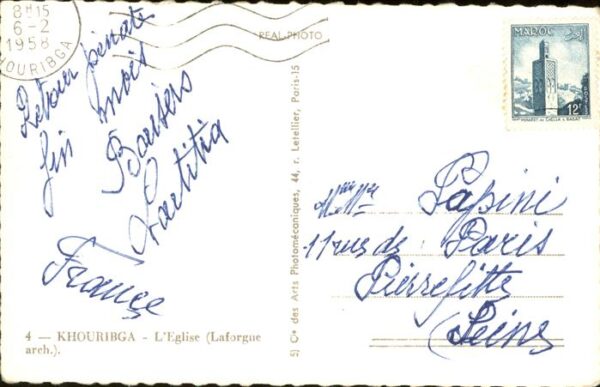 8H15
6-2
1958
KHOURIBGA
REAL PHOTO
MAROC
12F
MINARET DE CHELLA A RABAT
Retour pénate
fin mois
Baisers
Laetitia
France
4 — KHOURIBGA - L'Eglise (Laforgue
arch.).
5) Cie des Arts Photomécaniques, 44, r. Letellier, Paris-15
Papini
11 rue de Paris
Pierrefitte
(Seine)